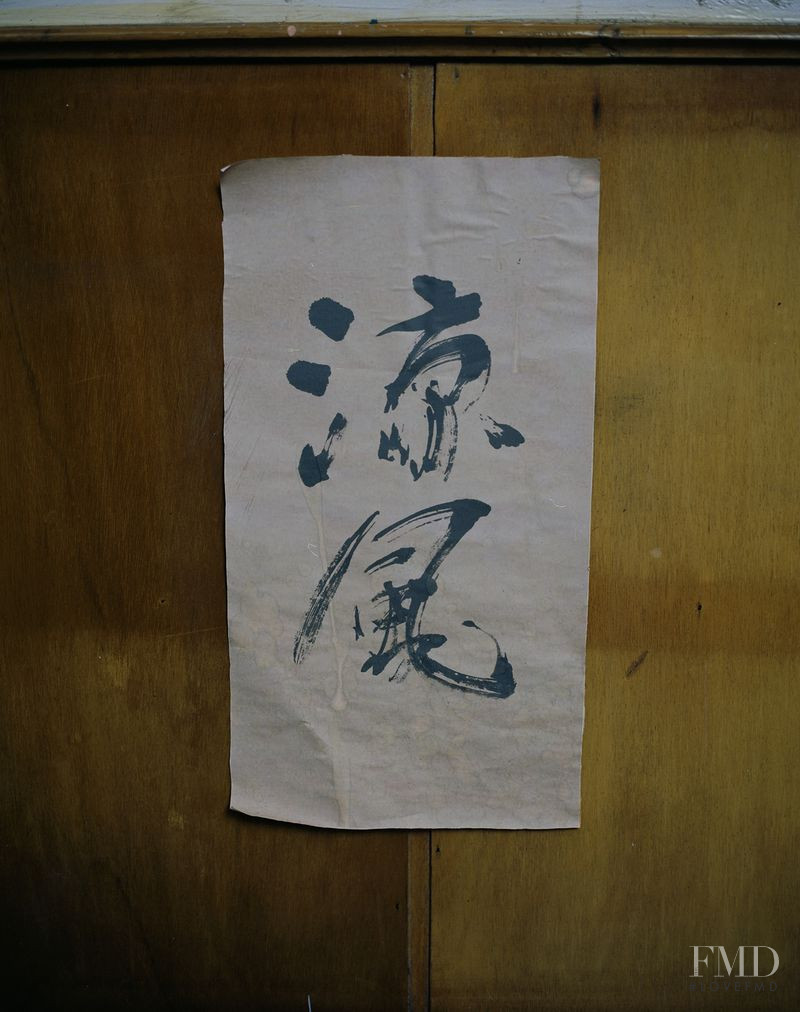 涼風
FMD